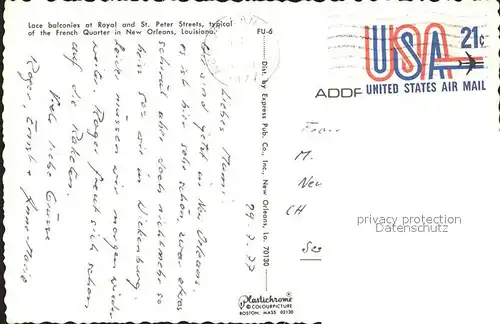 Lace balconies at Royal and St. Peter Streets, typical
of the French Quarter in New Orleans, Louisiana.
FU-6
29.7.77
Liebes Mammi,
Wir sind jetzt in New Orleans.
es ist hier sehr schön, zwar etwas
schwül aber doch nicht mehr so
heiss wie in
müssen wir morgen wieder
weiter. Roger freut sich schon
auf die Raketen.
Viele liebe Grüsse
Roger, Ernst + Anne-Marie
Dist. by Express Pub. Co., Inc., New Orleans, La. 70130
Plastichrome
® COLOURPICTURE
BOSTON, MASS 02130
USA 21c
UNITED STATES AIR MAIL
ADDR
M.
New
CH
privacy protection
Datenschutz